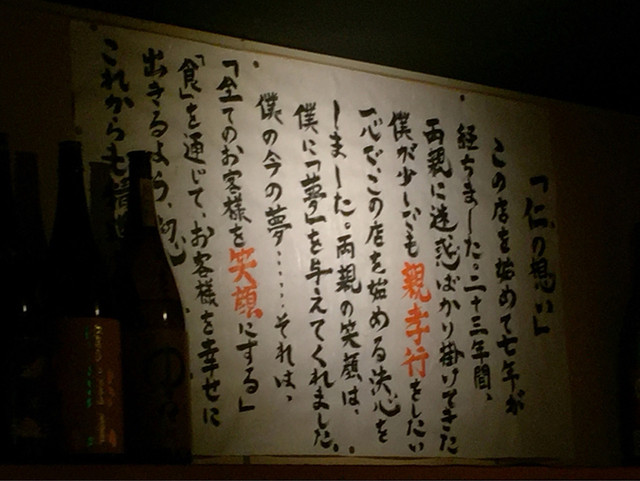 「仁の想い」
この店を始めて七年が
経ちました。二十三年間、
両親に迷惑ばかり掛けてきた
僕が少しでも親孝行をしたい
一心で、この店を始める決心を
しました。両親の笑顔は、
僕に「夢」を与えてくれました。
僕の今の夢……それは、
「全てのお客様を笑顔にする」
「食」を通じて、お客様を幸せに
出きるよう、初心
これからも精進